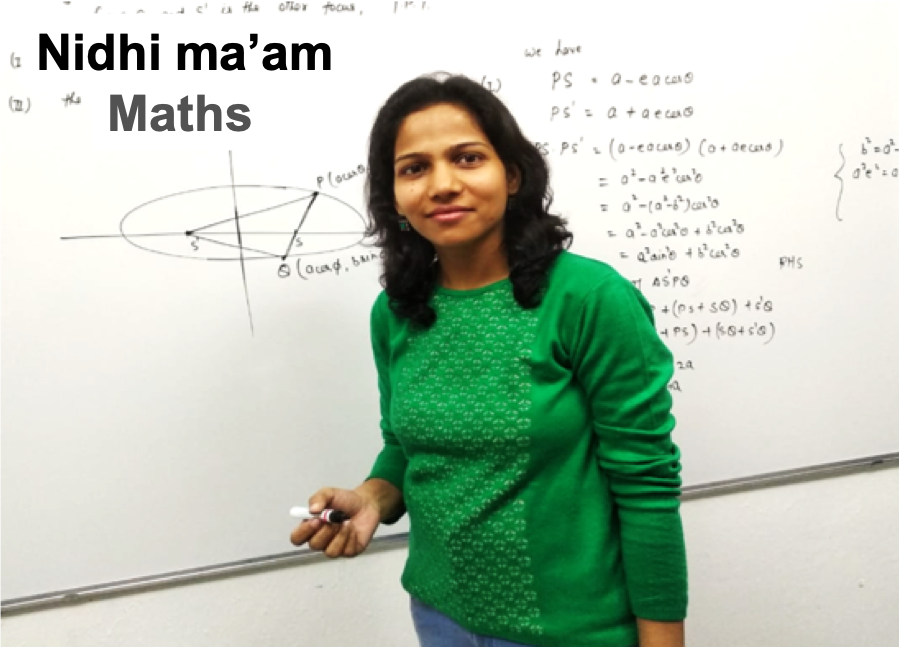 S' is the other focus,
(I
Nidhi ma’am
(II) the
Maths
P (acosθ
S'
S
Q (acosϕ, bsin
we have
(I) PS = a - eacosθ
PS' = a + aecosθ
PS. PS' = (a-eacosθ) (a+aecosθ)
= a² - a²e²cos²θ
= a² - (a²-b²)cos²θ
= a² - a²cos²θ + b²cos²θ
= a²sin²θ + b²cos²θ
RHS
ΔS'PQ
+ (PS + SQ) + S'Q
+ PS) + (SQ + S'Q)
2a
b² = a² -
a²e² = a